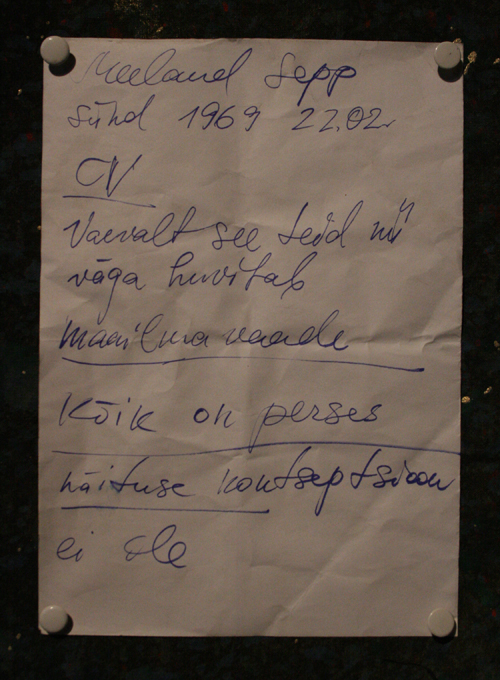 Meeland Sepp
sünd 1969 22.02.
CV
Vaevalt see teid nii
väga huvitab
maailmavaade
Kõik on perses
näituse kontseptsioon
ei ole